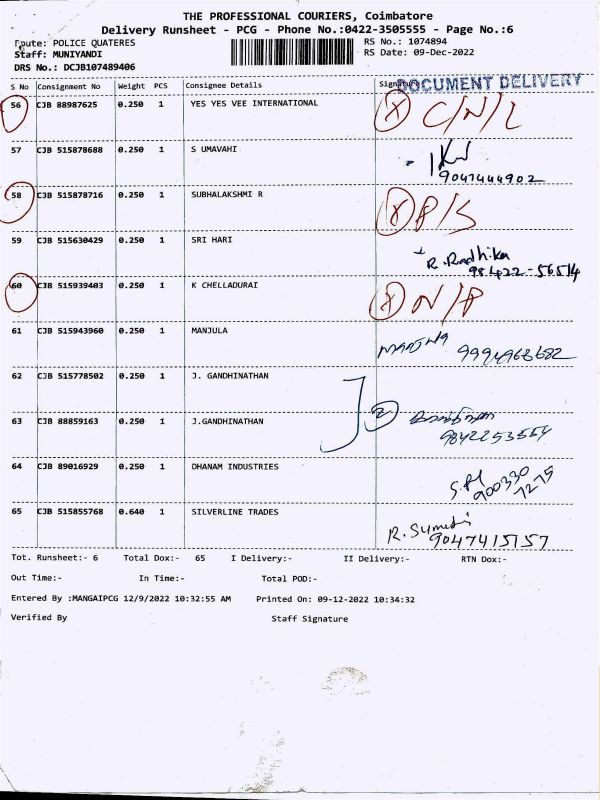 THE PROFESSIONAL COURIERS, Coimbatore
Delivery Runsheet - PCG - Phone No.:0422-3505555 - Page No.:6
Route: POLICE QUATERES
RS No.: 1074894
Staff: MUNIYANDI
RS Date: 09-Dec-2022
DRS No.: DCJB107489406
DOCUMENT DELIVERY
S No Consignment No Weight PCS Consignee Details Signature
56 CJB 88987625 0.250 1 YES YES VEE INTERNATIONAL X C/N/L
57 CJB 515878688 0.250 1 S UMAVAHI
9047444902
58 CJB 515878716 0.250 1 SUBHALAKSHMI R X P/S
59 CJB 515630429 0.250 1 SRI HARI R. Radhika
98422-56514
60 CJB 515939403 0.250 1 K CHELLADURAI X N/P
61 CJB 515943960 0.250 1 MANJULA
9994963682
62 CJB 515778502 0.250 1 J. GANDHINATHAN
63 CJB 88859163 0.250 1 J.GANDHINATHAN 2
9842253554
64 CJB 89016929 0.250 1 DHANAM INDUSTRIES
900330
7275
65 CJB 515855768 0.640 1 SILVERLINE TRADES
9047415157
Tot. Runsheet:- 6 Total Dox:- 65 I Delivery:- II Delivery:- RTN Dox:-
Out Time:- In Time:- Total POD:-
Entered By :MANGAIPCG 12/9/2022 10:32:55 AM Printed On: 09-12-2022 10:34:32
Verified By Staff Signature